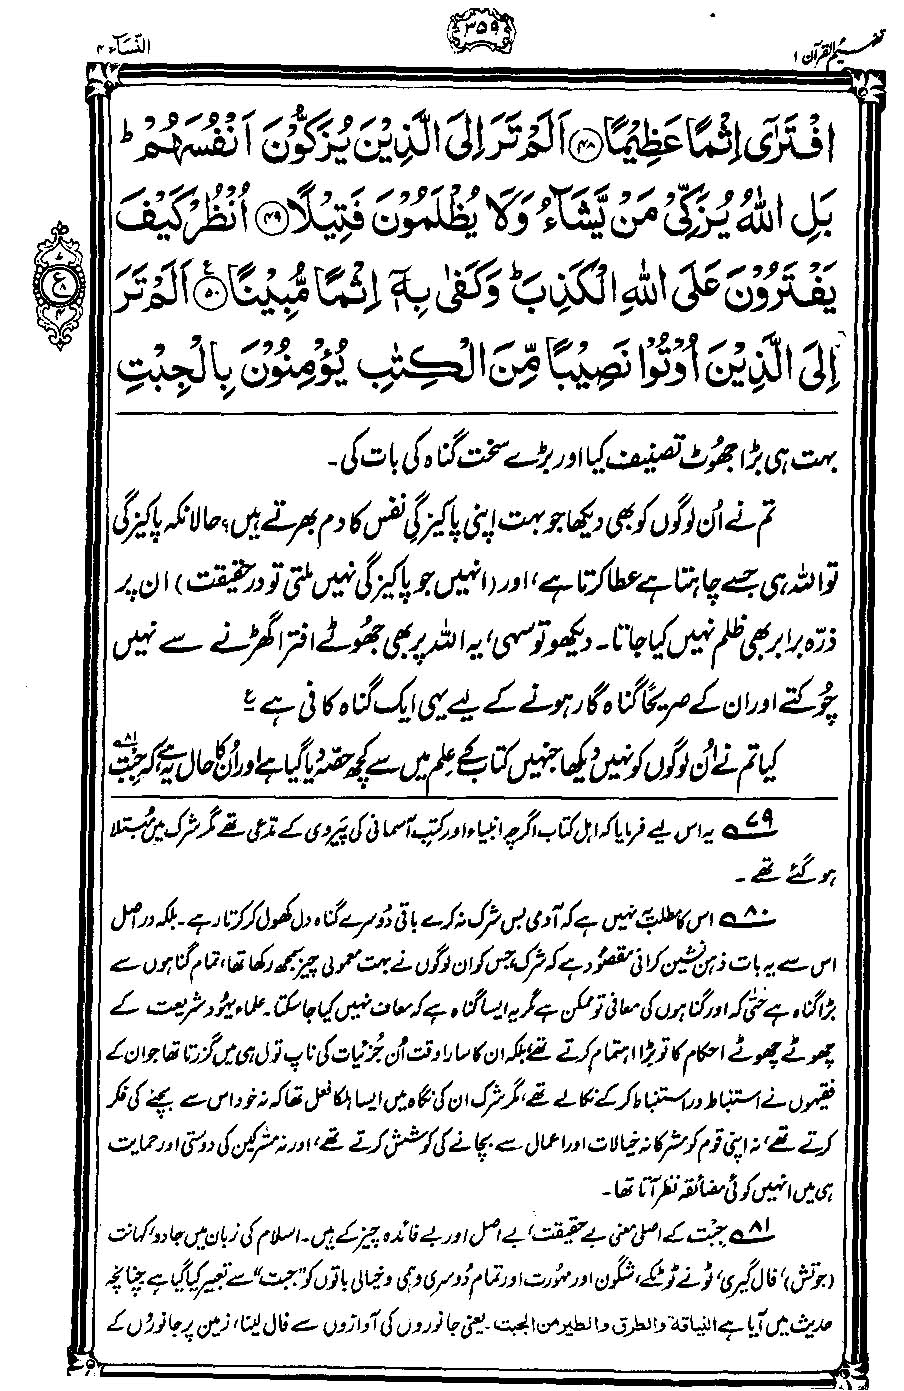 تفہیم القرآن ۱
۳۵۹
النسآء ۴
افْتَرٰۤی اِثْمًا عَظِیْمًا ﴿۴۸﴾ اَلَمْ تَرَ اِلَی الَّذِیْنَ یُزَكُّوْنَ اَنْفُسَهُمْ ؕ
بَلِ اللّٰهُ یُزَكِّیْ مَنْ یَّشَآءُ وَلَا یُظْلَمُوْنَ فَتِیْلًا ﴿۴۹﴾ اُنْظُرْ كَیْفَ
یَفْتَرُوْنَ عَلَی اللّٰهِ الْكَذِبَ ؕ وَكَفٰی بِهٖۤ اِثْمًا مُّبِیْنًا ﴿۵۰﴾ اَلَمْ تَرَ
اِلَی الَّذِیْنَ اُوْتُوْا نَصِیْبًا مِّنَ الْكِتٰبِ یُؤْمِنُوْنَ بِالْجِبْتِ
ع
۸
۴
بہت ہی بڑا جھُوٹ تصنیف کیا اور بڑے سخت گناہ کی بات کی۔
تم نے اُن لوگوں کو بھی دیکھا جو بہت اپنی پاکیزگیِ نفس کا دم بھرتے ہیں؟ حالانکہ پاکیزگی
تو اللہ ہی جسے چاہتا ہے عطا کرتا ہے، اور (انہیں جو پاکیزگی نہیں ملتی تو در حقیقت) ان پر
ذرّہ برابر بھی ظلم نہیں کیا جاتا۔ دیکھو تو سہی، یہ اللہ پر بھی جھُوٹے افترا گھڑنے سے نہیں
چُوکتے اور ان کے صریحًا گناہ گار ہونے کے لیے یہی ایک گناہ کافی ہے ؏
کیا تم نے اُن لوگوں کو نہیں دیکھا جنہیں کتاب کے علم میں سے کچھ حصّہ دیا گیا ہے اور اُن کا حال یہ ہے کہ جِبْت ۸۱
۷۹ یہ اس لیے فرمایا کہ اہل کتاب اگرچہ انبیاء اور کتبِ آسمانی کی پَیروی کے مدّعی تھے مگر شرک میں مُبتلا
ہو گئے تھے۔
۸۰ اس کا مطلب یہ نہیں ہے کہ آدمی بس شرک نہ کرے باقی دُوسرے گناہ دل کھول کر کرتا رہے۔ بلکہ دراصل
اس سے یہ بات ذہن نشین کرانی مقصُود ہے کہ شرک، جس کو ان لوگوں نے بہت معمولی چیز سمجھ رکھا تھا، تمام گناہوں سے
بڑا گناہ ہے حتٰی کہ اور گناہوں کی معافی تو ممکن ہے مگر یہ ایسا گناہ ہے کہ معاف نہیں کیا جا سکتا۔ علماء یہُود شریعت کے
چھوٹے چھوٹے احکام کا تو بڑا اہتمام کرتے تھے، بلکہ ان کا سارا وقت اُن جُزئیات کی ناپ تول ہی میں گزرتا تھا جو ان کے
فقیہوں نے استنباط در استنباط کر کے نکالے تھے، مگر شرک ان کی نگاہ میں ایسا ہلکا فعل تھا کہ نہ خود اس سے بچنے کی فکر
کرتے تھے، نہ اپنی قوم کو مشرکانہ خیالات اور اعمال سے بچانے کی کوشش کرتے تھے، اور نہ مشرکین کی دوستی اور حمایت
ہی میں انہیں کوئی مضائقہ نظر آتا تھا۔
۸۱ جِبْت کے اصلی معنی بے حقیقت، بے اصل اور بے فائدہ چیز کے ہیں۔ اسلام کی زبان میں جادو، کہانت
(جوتش)، فال گیری، ٹونے ٹوٹکے، شگون اور مہُورت اور تمام دُوسری وہمی و خیالی باتوں کو ”جبت“ سے تعبیر کیا گیا ہے چنانچہ
حدیث میں آیا ہے النیاقة والطرق والطیر من الجبت۔ یعنی جانوروں کی آوازوں سے فال لینا، زمین پر جانوروں کے